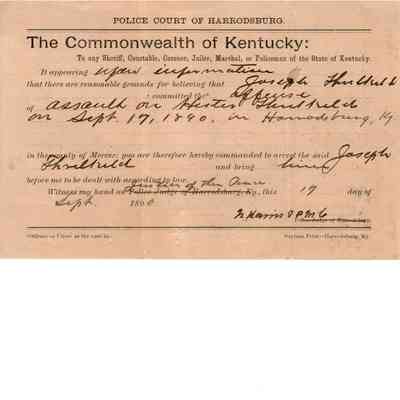 POLICE COURT OF HARRODSBURG.
The Commonwealth of Kentucky:
To any Sheriff, Constable, Coroner, Jailer, Marshal, or Policeman of the State of Kentucky.
It appearing upon information
that there are reasonable grounds for believing that Joseph Threlkeld
committed the offense
of assault on Hester Threlkeld
on Sept 17, 1890. in Harrodsburg, Ky
in the county of Mercer; you are therefore hereby commanded to arrest the said Joseph
Threlkeld and bring him
before me to be dealt with according to law.
Justice of the Peace
Witness my hand as Police Judge of Harrodsburg, Ky., this 17 day of
Sept 1890
Harris J P M C